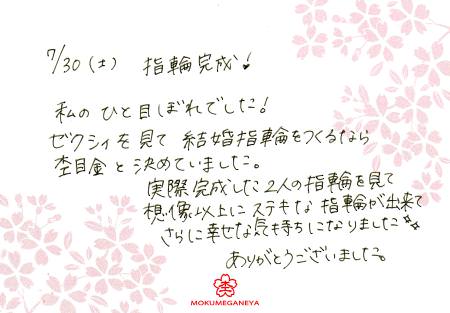 7/30（土） 指輪完成！
私の ひと目ぼれでした！
ゼクシィを見て 結婚指輪をつくるなら
杢目金と決めていました。
実際完成した2人の指輪を見て
想像以上にステキな 指輪が出来て
さらに幸せな気持ちになりました
ありがとうございました。
杢
MOKUMEGANEYA